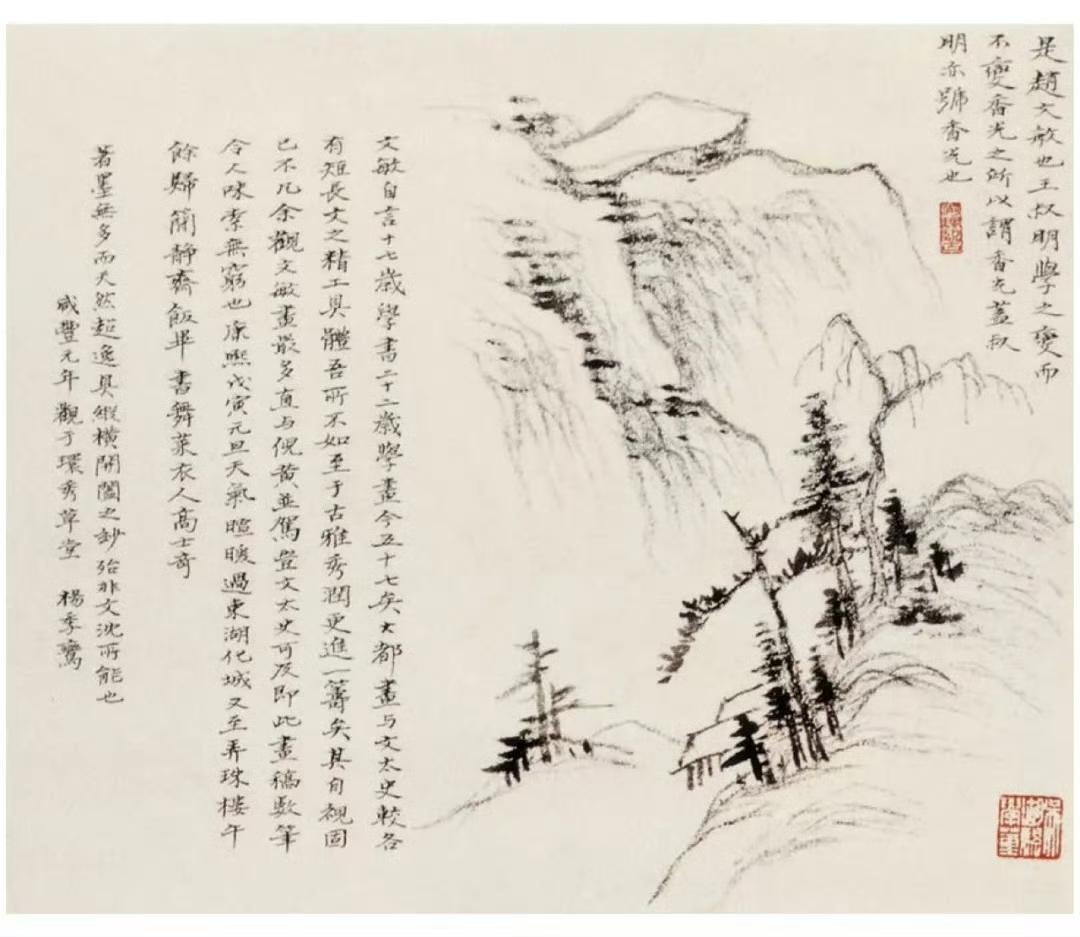 是趙文敏也王叔明學之變而
不變香光之所以謂香光蓋叔
明亦號香光也
文敏自言十七歲學書二十二歲學畫今五十七矣大都畫與文太史較各
有短長文之精工具體吾所不如至于古雅秀潤更進一籌矣其自視固
已不凡余觀文敏畫最多直与倪黃並駕豈文太史可及即此畫稿數筆
令人味索無窮也康熙戊寅元旦天氣暄暖過東湖化城又至弄珠樓午
餘歸簡靜齋飯畢書舞萊衣人高士奇
著墨無多而天然超逸具縱橫開闔之妙殆非文沈所能也
咸豐元年觀于環秀草堂 楊季鸞